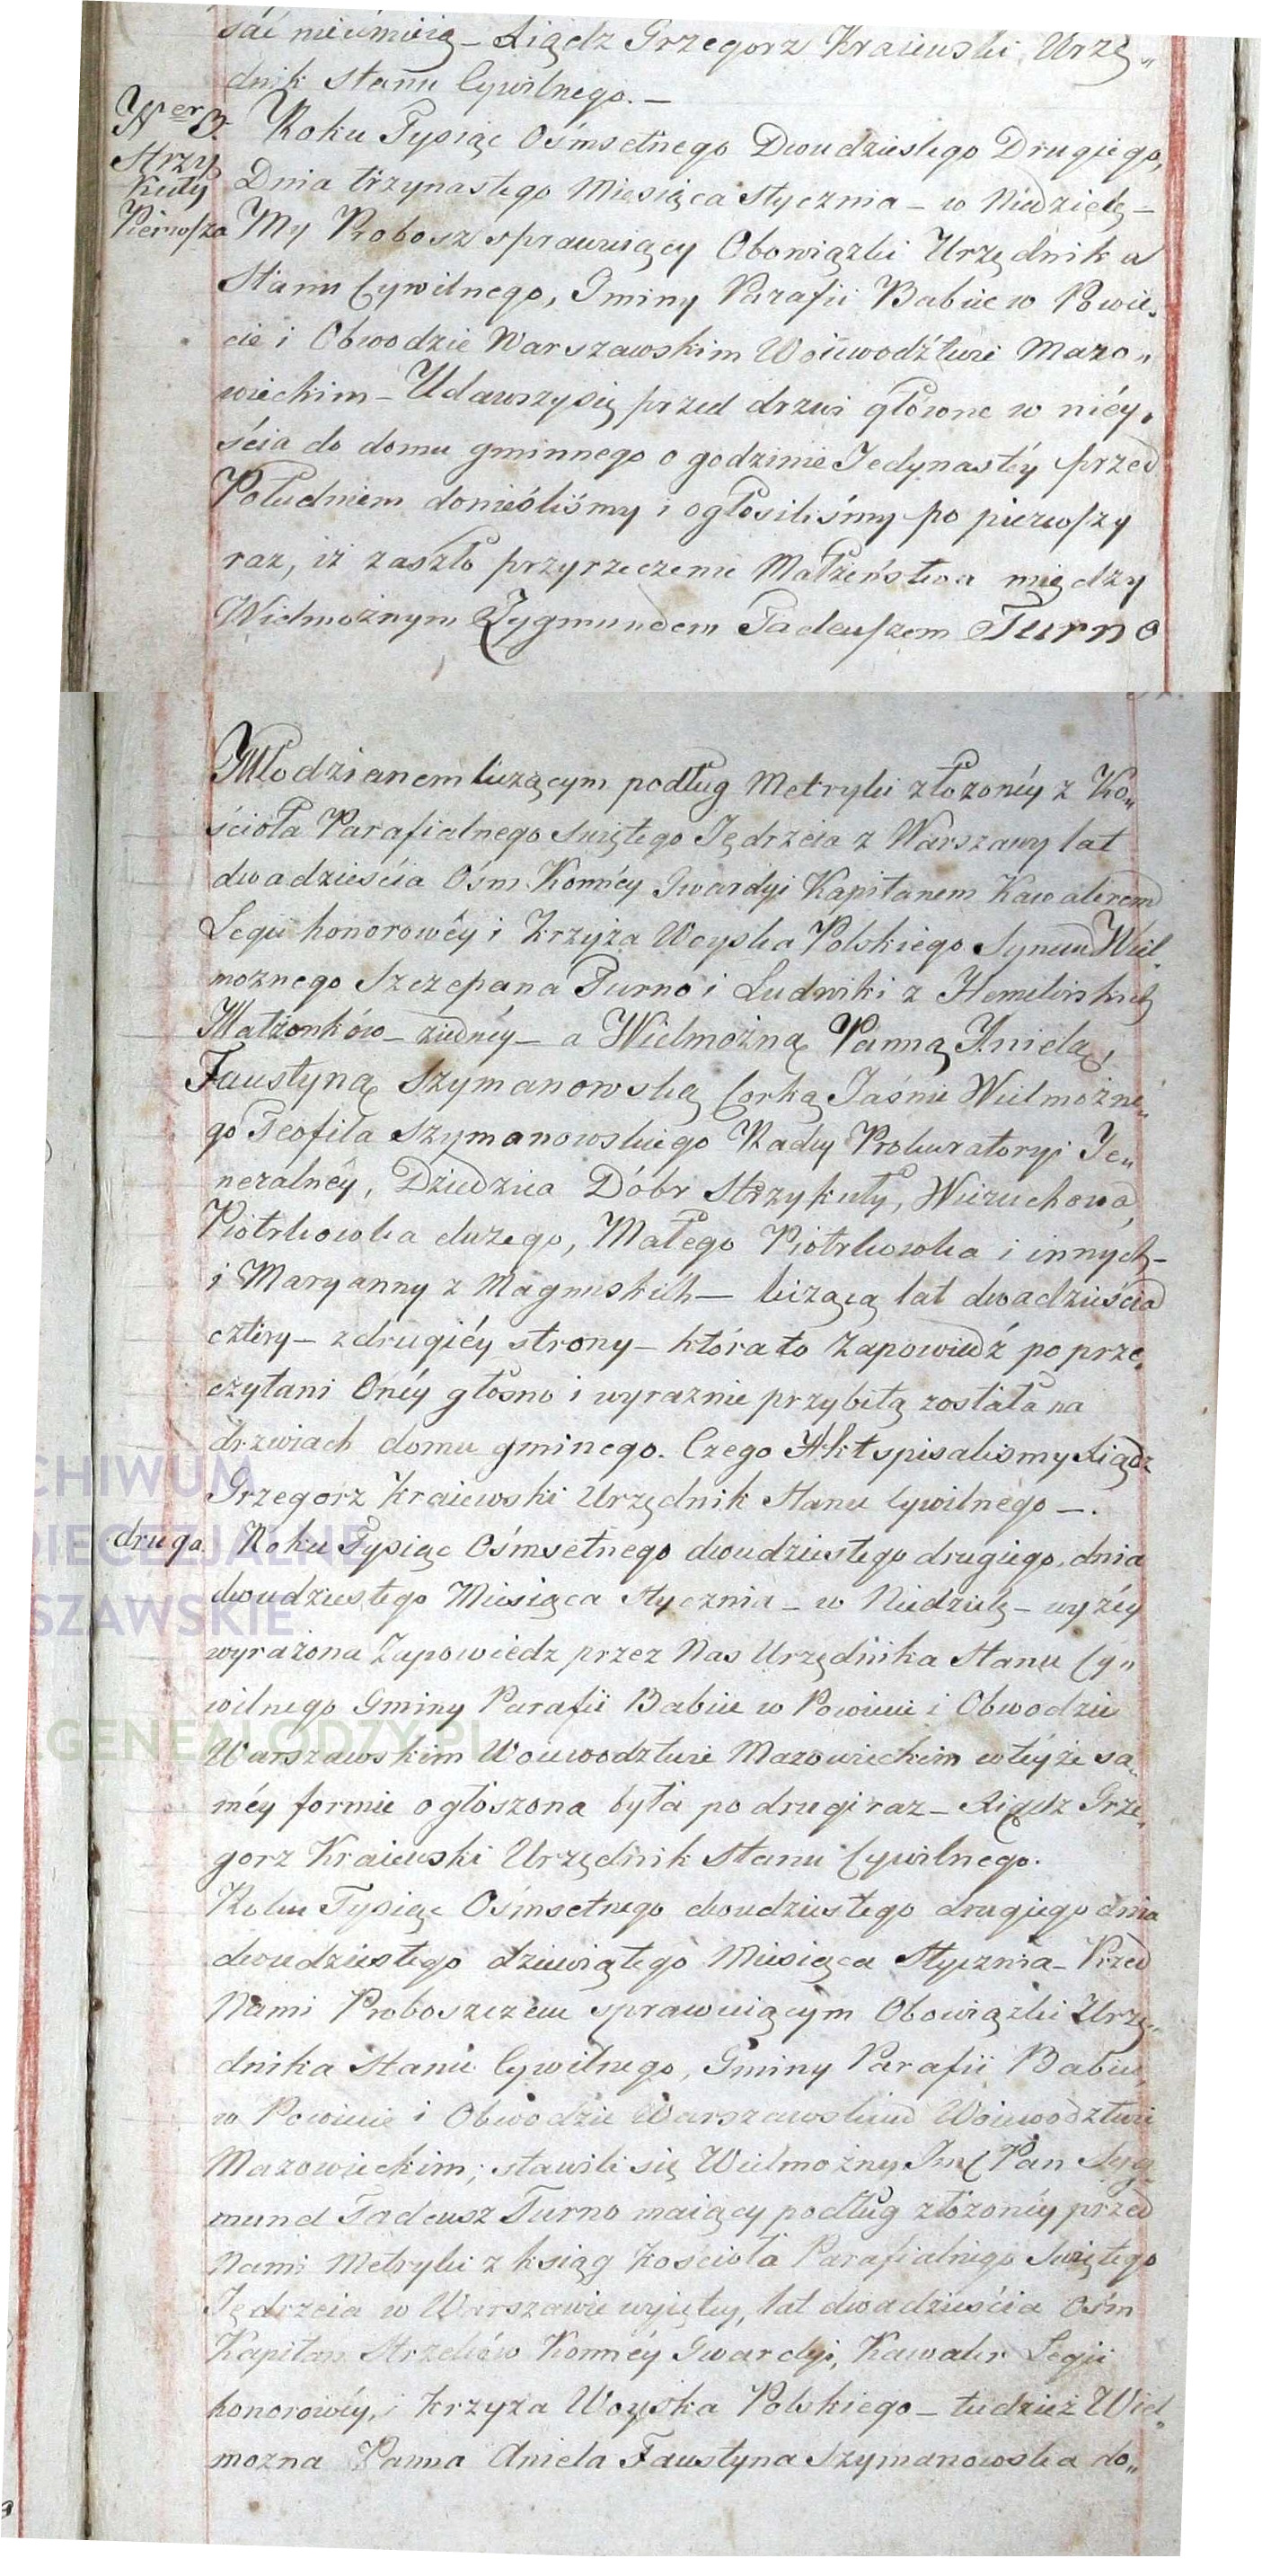 sać nieumieią – Xiądz Grzegorz Kraiewski Urzę„
dnik Stanu Cywilnego. –
Ner 3. Roku Tysiąc Ośmsetnego Dwudziestego Drugiego,
Strzy
kuły Dnia trzynastego Miesiąca Stycznia – w Niedzielę –
Pierwsza My Probosz sprawuiący Obowiązki Urzędnika
Stanu Cywilnego, Gminy Parafii Babice w Powie„
cie i Obwodzie Warszawskim Woiewodztwie Mazo„
wieckim – Udawszy się przed drzwi główne w niéy„
ścia do domu gminnego o godzinie Jedynastéy przed
Południem donieśliśmy i ogłosiliśmy po pierwszy
raz, iż zaszło przyrzeczenie Małżeństwa między
Wielmożnym Zygmundem Tadeuszem Turno
Młodzianem liczącym podług Metryki złożonéy z Ko„
ścioła Parafialnego Swiętego Jędrzeia z Warszawy lat
dwadzieścia Ośm Konnéy Gwardyi Kapitanem Kawalerem
Legii honorowéy i Krzyża Woyska Polskiego Synem Wiel„
możnego Szczepana Turno i Ludwiki z
Małżonków – ziednéy – a Wielmożną Panną Anielą,
Faustyną Szymanowską Corką Jaśnie Wielmożne„
go Teofila Szymanowskiego Rady Prokuratoryi Je„
neralnéy, Dziedzica Dóbr Strzykuły, Wieruchowa,
Piotrkowka dużego, Małego Piotrkowka i innych –
i Maryanny z Magnuskich – liczącą lat dwadzieścia
cztery – z drugiéy strony – która to Zapowiedź po prze„
czytani Onéy głosno i wyraznie przybitą została na
drzwiach domu gminego. Czego Akt spisalismy Xiądz
Grzegorz Kraiewski Urzędnik Stanu Cywilnego –.
druga. Roku Tysiąc Ośmsetnego dwudziestego drugiego, dnia
dwudziestego Miesiąca Stycznia – w Niedzielę – wyżéy
wyrażona Zapowiedz przez Nas Urzędnika Stanu Cy„
wilnego Gminy Parafii Babice w Powiecie i Obwodzie
Warszawskim Woiewodztwie Mazowieckim w téyże sa„
méy formie ogłoszona była po drugi raz – Xiądz Grze„
gorz Kraiewski Urzędnik Stanu Cywilnego.
Roku Tysiąc Ośmsetnego dwudziestego drugiego dnia
dwudziestego dziewiątego Miesiąca Stycznia – Przed
Nami Proboszczem sprawuiącym Obowiązki Urzę„
dnika Stanu Cywilnego, Gminy Parafii Babice,
w Powiecie i Obwodzie Warszawskim Woiewodztwie
Mazowieckim; stawili się Wielmożny Pan Zyg„
mund Tadeusz Turno maiący podług złożonéy przed
Nami Metryki z ksiąg Kościoła Parafialnego Swiętego
Jędrzeia w Warszawie wyiętey, lat dwadzieścia ośm
Kapitan Strzelców Konnéy Gwardyi, Kawaler Legii
honorowéy, i Krzyża Woyska Polskiego – tudzież Wiel„
można Panna Aniela Faustyna Szymanowska do„
CHIWUM
DIECEZJALNE
SZAWSKIE
GENEALODZY.PL